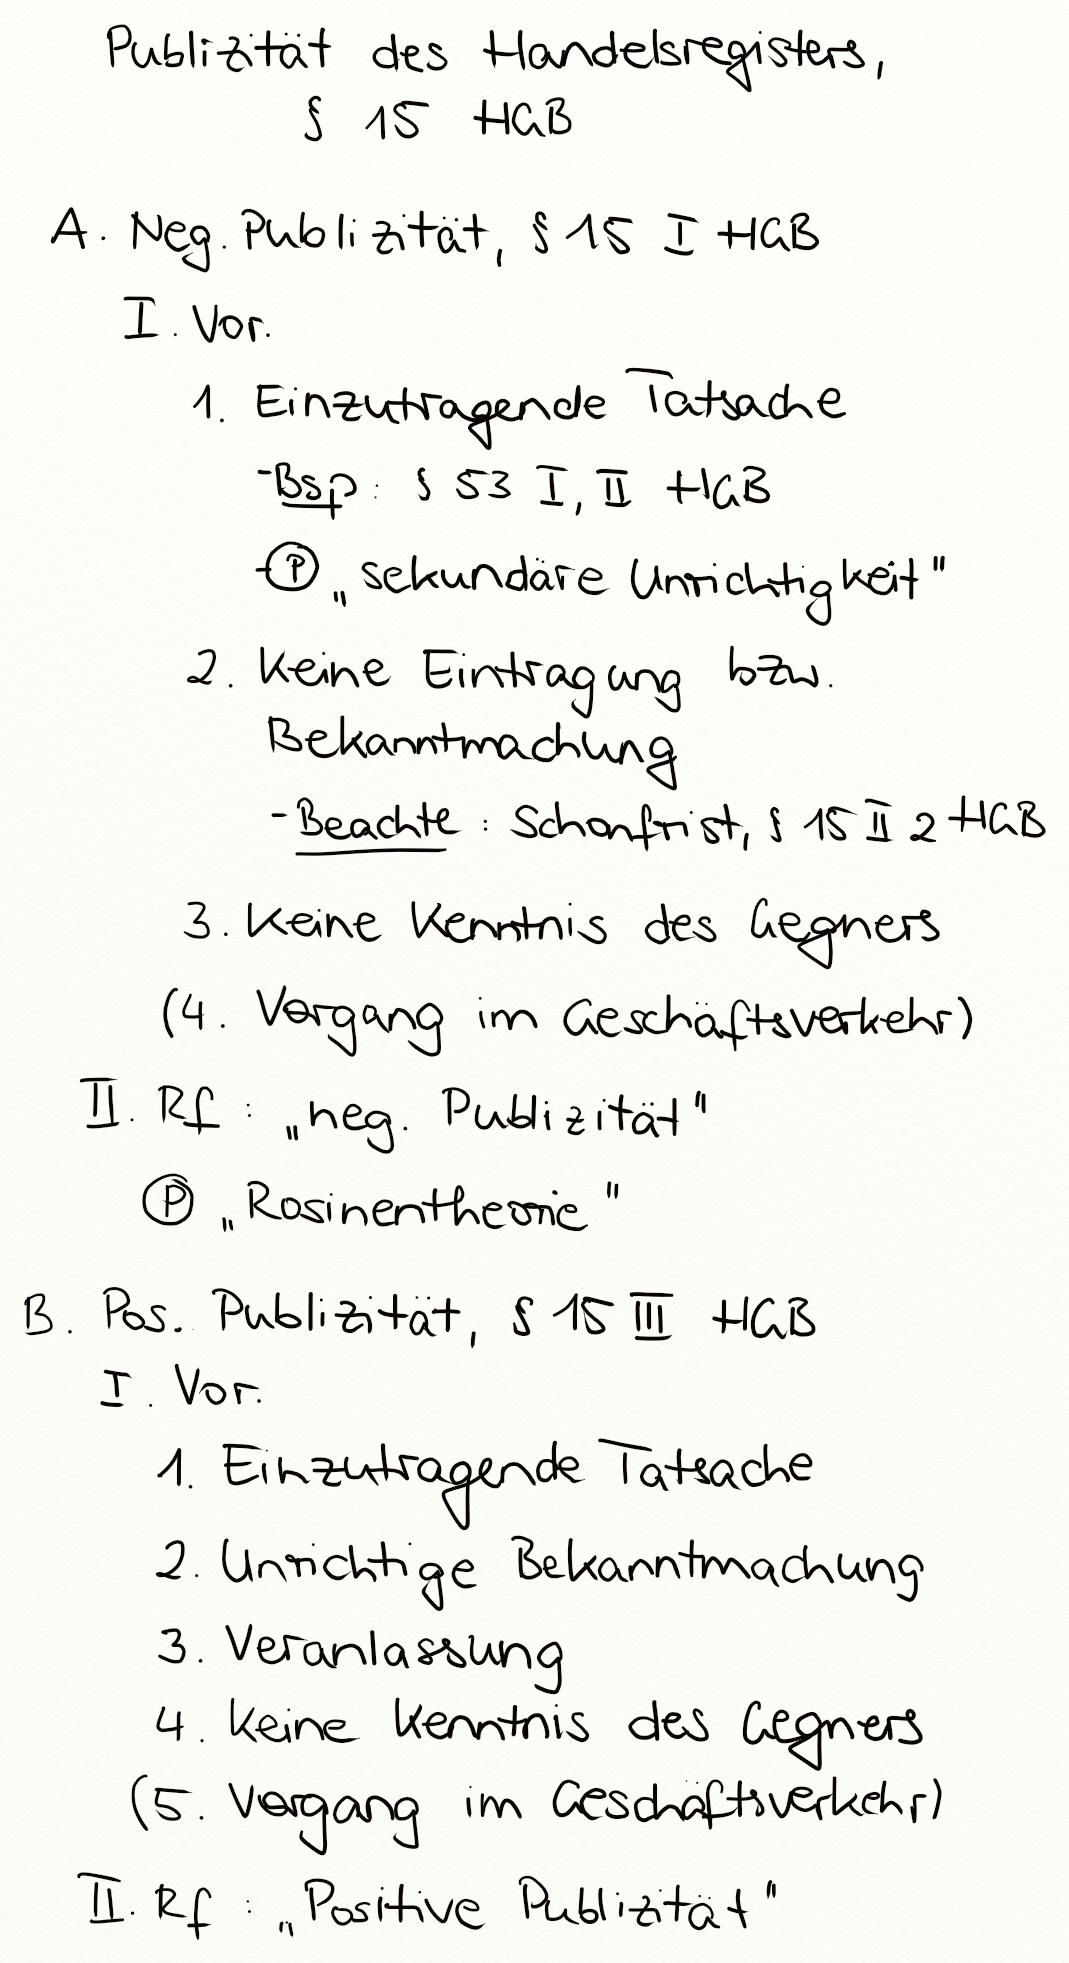 Publizität des Handelsregisters,
§ 15 HGB
A. Neg. Publizität, § 15 I HGB
I. Vor.
1. Einzutragende Tatsache
- Bsp: § 53 I, II HGB
- Ⓟ „sekundäre Unrichtigkeit"
2. Keine Eintragung bzw.
Bekanntmachung
- Beachte: Schonfrist, § 15 II 2 HGB
3. Keine Kenntnis des Gegners
(4. Vorgang im Geschäftsverkehr)
II. Rf: „neg. Publizität"
Ⓟ „Rosinentheorie"
B. Pos. Publizität, § 15 III HGB
I. Vor.
1. Einzutragende Tatsache
2. Unrichtige Bekanntmachung
3. Veranlassung
4. Keine Kenntnis des Gegners
(5. Vorgang im Geschäftsverkehr)
II. Rf: „Positive Publizität"